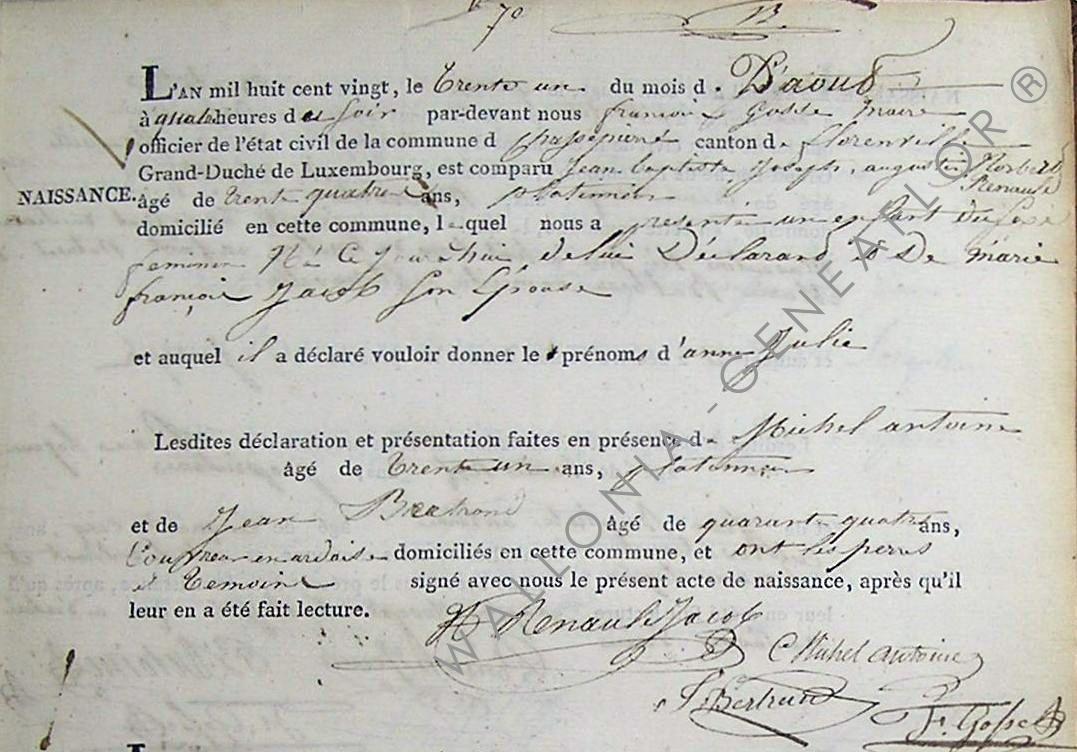 7o B.
L'AN mil huit cent vingt, le trente un du mois d. D'aoud
à quatre heures d u soir par-devant nous françois Gosse maire
officier de l'état civil de la commune d chassepierre canton de florenville
Grand-Duché de Luxembourg, est comparu Jean baptiste Joseph, augustin Norbert
Renauld
NAISSANCE. âgé de trente quatre ans, platineur
domicilié en cette commune, lequel nous a présenté un enfant du sexe
feminin Né ce jourd'hui de lui Déclarand & De Marie
françoise Jacob son Epouse
et auquel il a déclaré vouloir donner le prénoms d'anne Julie
Lesdites déclaration et présentation faites en présence d. Michel antoine
âgé de trente un ans, platineur
et de Jean Bertrand âgé de quarante quatre ans,
Couvreur en ardoise domiciliés en cette commune, et ont les peres
et temoins signé avec nous le présent acte de naissance, après qu'il
leur en a été fait lecture.
Renauld Jacob
Michel antoine
J. Bertrand
F. Gosse
WALLONIA - GENEALOR ®
L